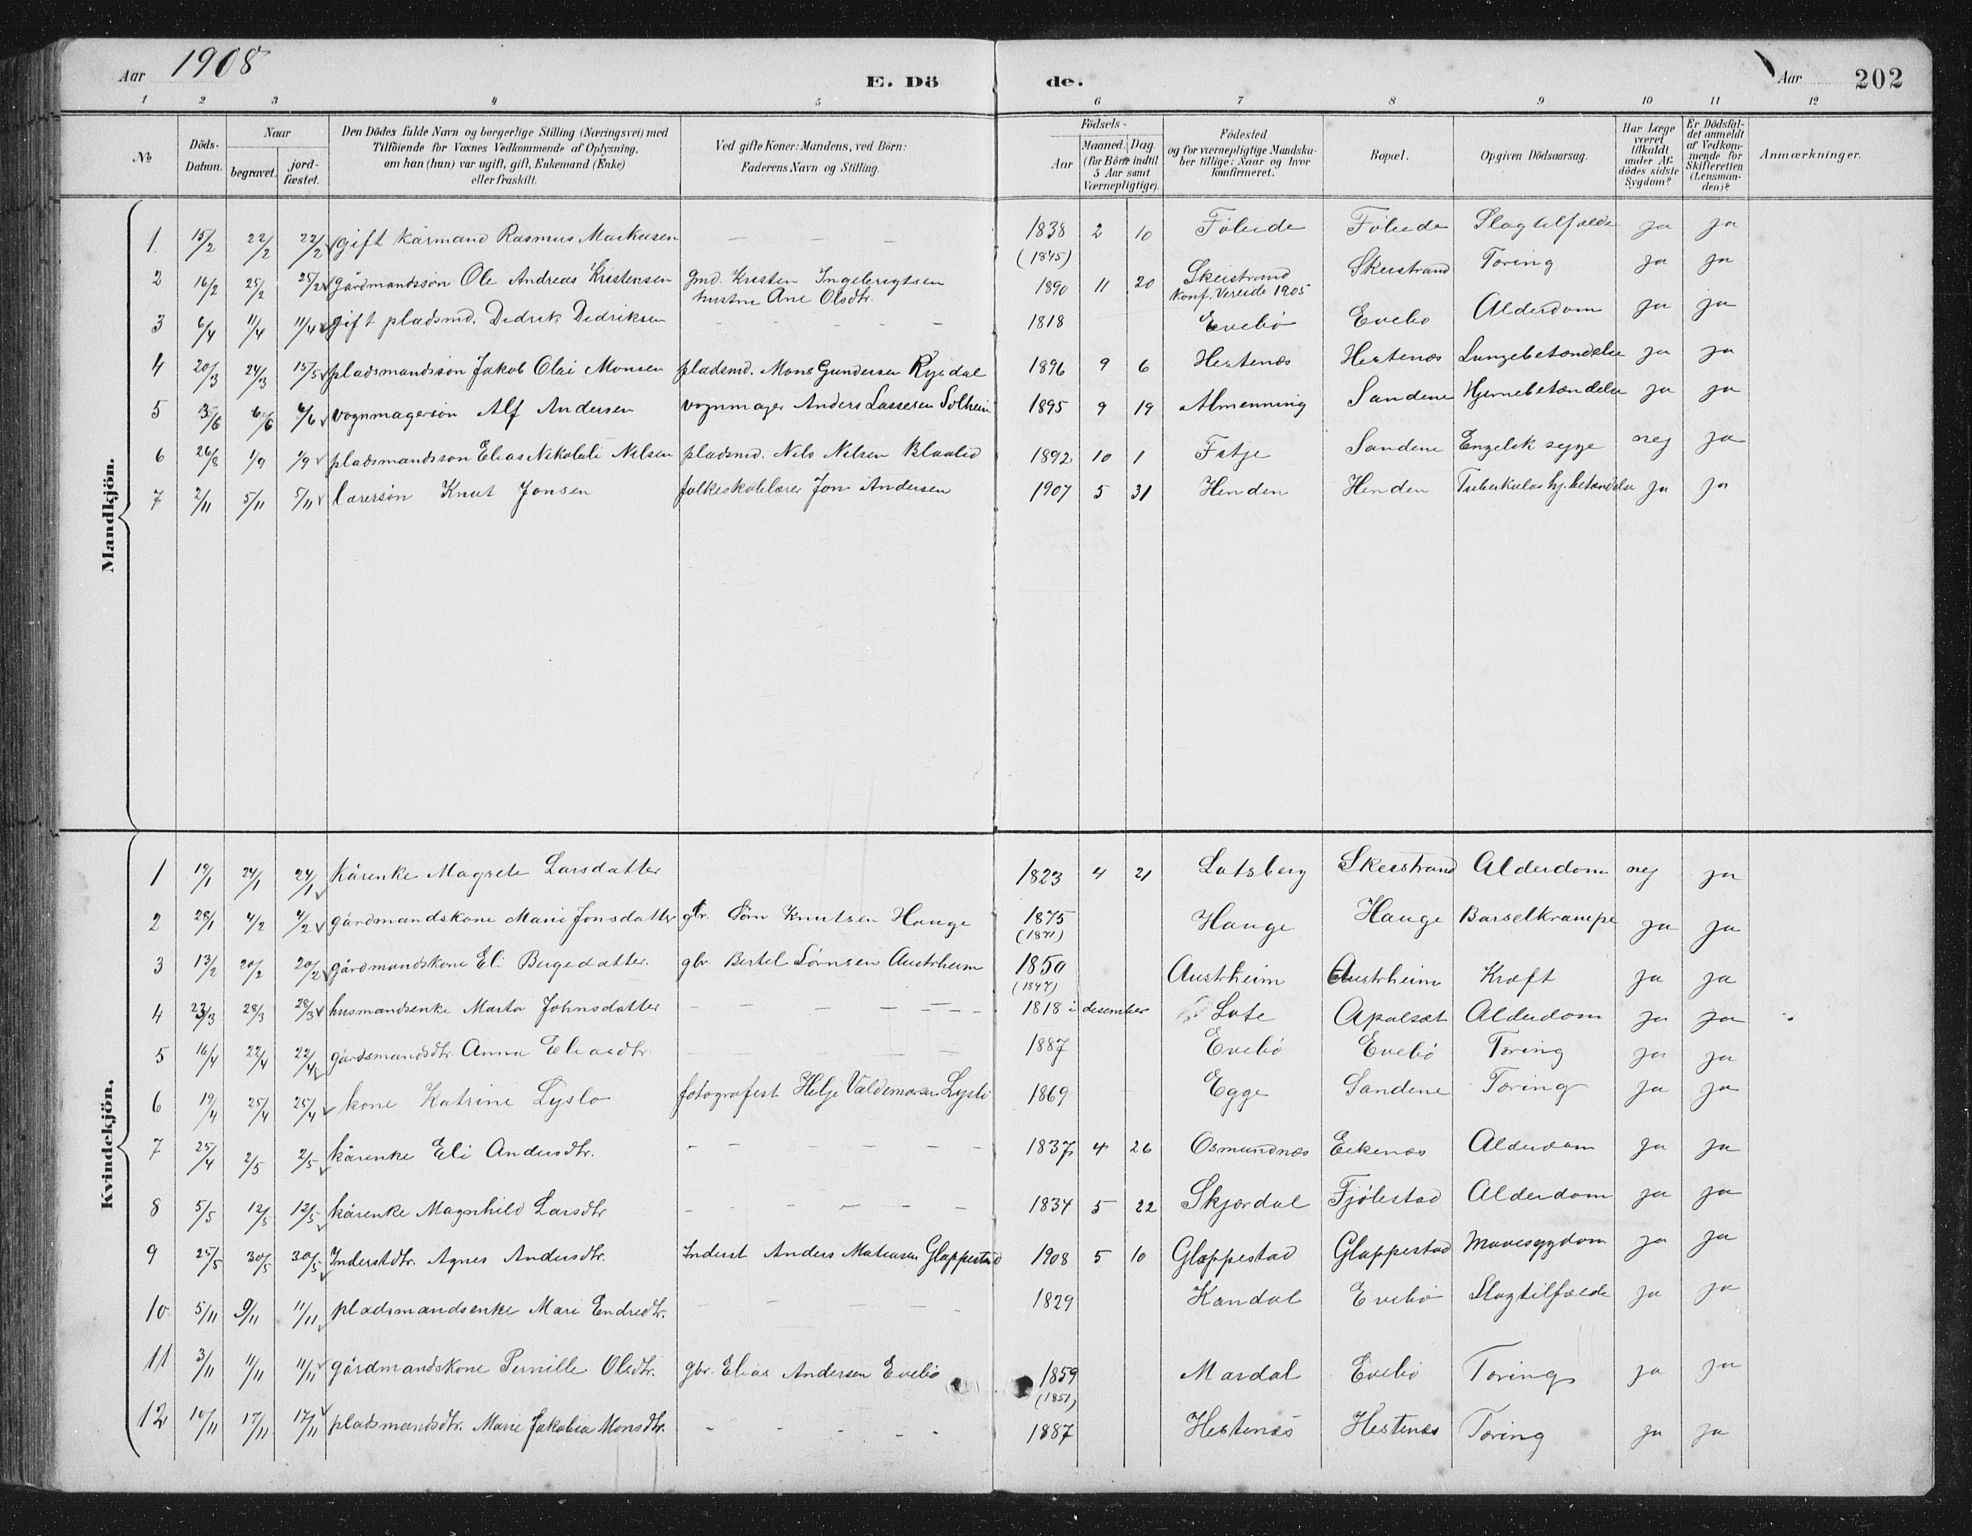 Aar 1908 E. Dö de. Aar 202
1 2 3 4 5 6 7 8 9 10 11 12
No. Döds-Datum. Naar begravet. jordfæstet. Den Dödes fulde Navn og borgerlige Stilling (Næringsvei) med Tilföiende for Voxnes Vedkommende af Oplysning, om han (hun) var ugift, gift, Enkemand (Enke) eller fraskilt. Ved gifte Koner: Mandens, ved Börn: Faderens Navn og Stilling. Födsels- Aar Maaned. Dag. (for Börn indtil 5 Aar samt Værnepligtige). Födested og for værnepligtige Mandskaber tillige: Naar og hvor konfirmeret. Bopæl. Opgiven Dödsaarsag. Har Læge været tilkaldt under Afdödes sidste Sygdom? Er Dödsfaldet anmeldt af Vedkommende for Skifteretten (Lensmanden)? Anmærkninger.
Mandkjön.
1. 15/2 22/2 22/2 gift kårmand Rasmus Markusen — — — 1838 (1845) 2 10 Föleide Föleide Slagtilfælde ja ja
2 16/2 25/2 25/2 gårdmandssön Ole Andreas Kristensen gmd. Kristen Ingebrigtsen hustru Ane Olsdtr. 1890 11 20 Skeistrand Konf. Vereide 1905 Skeistrand Tæring ja ja
3 6/4 11/4 11/4 gift pladsmd. Didrik Didriksen - - - - 1818 Evebö Evebö Alderdom ja ja
4 20/3 24/3 15/5 pladsmandssön Jakob Olai Monsen pladsmd. Mons Gundersen Rygdal 1896 9 6 Hestenæs Hestenæs Lungebetændelse ja ja
5 3/6 6/6 6/6 vognmagersön Alf Andersen vognmager Anders Lassesen Solheim 1895 9 19 Almenning Sandene Hjernebetændelse ja ja
6 26/8 1/9 1/9 pladsmandsson Elias Nikolali Nilsen pladsmd. Nils Nilsen Blaalid 1892 10 1 Fitje Sandene Engelsk syge nej ja
7 2/11 5/11 5/11 lærersön Knut Jonsen folkeskolelærer Jon Andersen 1907 5 31 Henden Henden Tuberkulos hj.betændelse ja ja
Kvindekjön.
1 19/1 24/1 24/1 kårenke Magrete Larsdatter 1823 4 21 Lotsberg Skeistrand Alderdom nej ja
2 28/1 4/2 4/2 gårdmandskone Marie Jonsdatter gbr. Sörn Knutsen Hauge 1875 (1871) Hauge Hauge Barselkrampe ja ja
3 13/2 20/2 20/2 gårdmandskone Eli Bugedatter. gbr. Bertel Sörnsen Austrheim 1850 (1847) Austrheim Austrheim Kræft ja ja
4 23/3 28/3 28/3 husmandsenke Marta Johnsdatter — — — — — 1818 i desember Lote Apalsæt Alderdom ja ja
5 16/4 22/4 22/4 gårdsmandsdtr. Anna Eliasdtr. — — 1887 Evebö Evebö Tæring ja ja
6 19/4 25/4 25/4 kone Katrine Lyslo fotografest Helje Valdemarsen Lyslo 1869 Egge Sandene Tæring ja ja
7 25/4 2/5 2/5 kårenke Eli Andersdtr. — — — — 1837 4 26 Osmundnæs Eikenæs Alderdom ja ja
8 5/5 12/5 12/5 kårenke Magnhild Larsdtr — — — — — 1834 5 22 Skjærdal Fjölestad Alderdom ja ja
9 25/5 30/5 30/5 Inderstdtr. Agnes Andersdtr. Inderst Anders Matiasen Gloppestad 1908 5 10 Gloppestad Gloppestad Mavesygdom ja ja
10 5/11 9/11 11/11 pladsmandsenke Mari Endredtr. — — — — 1829 Kandal Evebö Slagtilfælde ja ja
11 3/11 11/11 11/11 gårdmandskone Pernille Olsdtr. gbr. Elias Andersen Evebö 1859 (1851) Mardal Evebö Tæring ja ja
12 10/11 17/11 17/11 pladsmandsdtr. Marie Jakobea Monsdtr. - - - - - 1887 Hestenæs Hestenæs Tæring ja ja